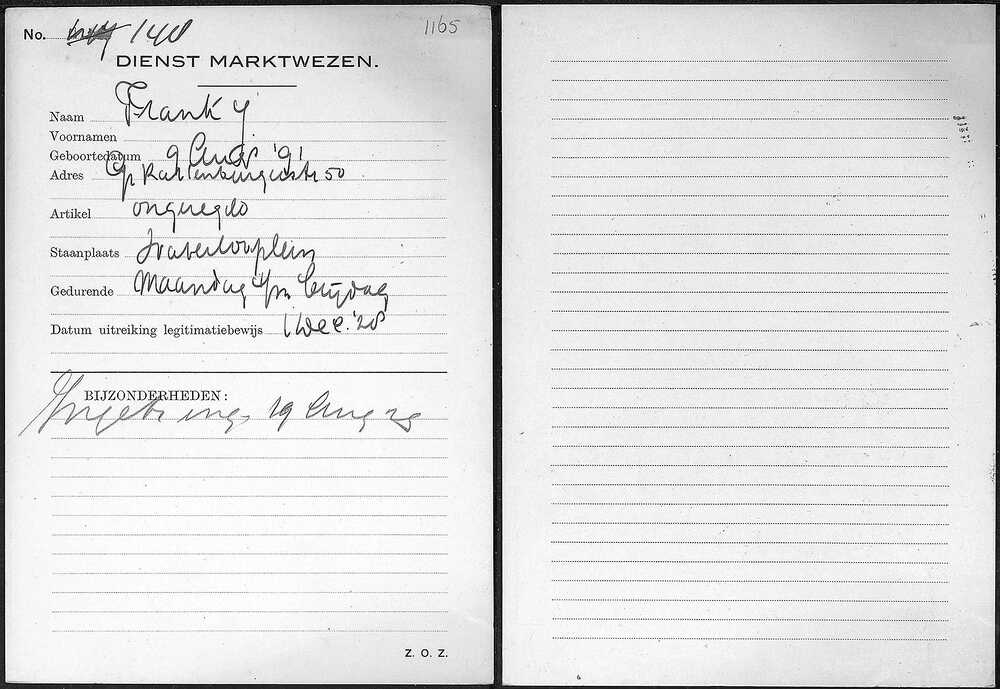 No. 148 1165
DIENST MARKTWEZEN.
Naam Frank
Voornamen
Geboortedatum 9 Aug '91
Adres Gr Kattenburgerstr 50
Artikel ongereg.
Staanplaats Waterlooplein
Gedurende Maandag t/m Vrijdag
Datum uitreiking legitimatiebewijs 1 Dec. '28
BIJZONDERHEDEN:
19 Aug 29
Z. O. Z.